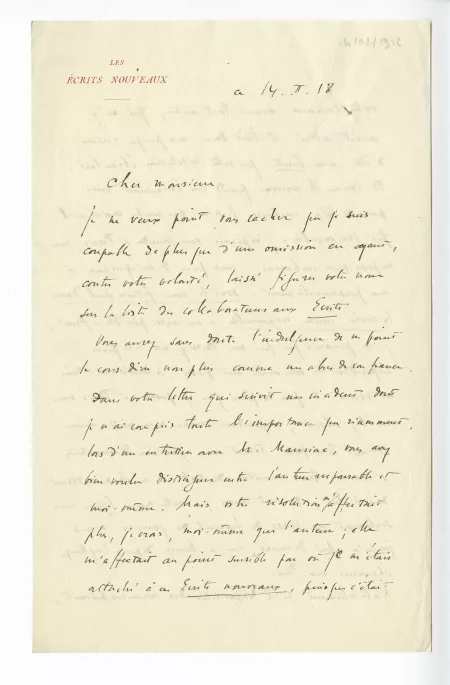 LES
ÉCRITS NOUVEAUX
ce 14. II. 18
Cher monsieur
Je ne veux point vous cacher que je suis
coupable de plus que d'une omission en ayant,
contre votre volonté, laissé figurer votre nom
sur la liste des collaborateurs aux Ecrits
Vous aurez sans doute l'indulgence de ne point
le considérer non plus comme un abus de confiance.
Dans votre lettre qui suivit un incident dont
je n'ai compris toute l'importance que récemment,
lors d'un entretien avec M. Mauriac, vous avez
bien voulu distinguer entre l'auteur responsable et
moi-même. Mais votre résolution m'affectait
plus, je crois, moi-même que l'auteur; elle
m'affectait au point sensible par où je m'étais
attaché à ces Ecrits nouveaux, puisque c'était